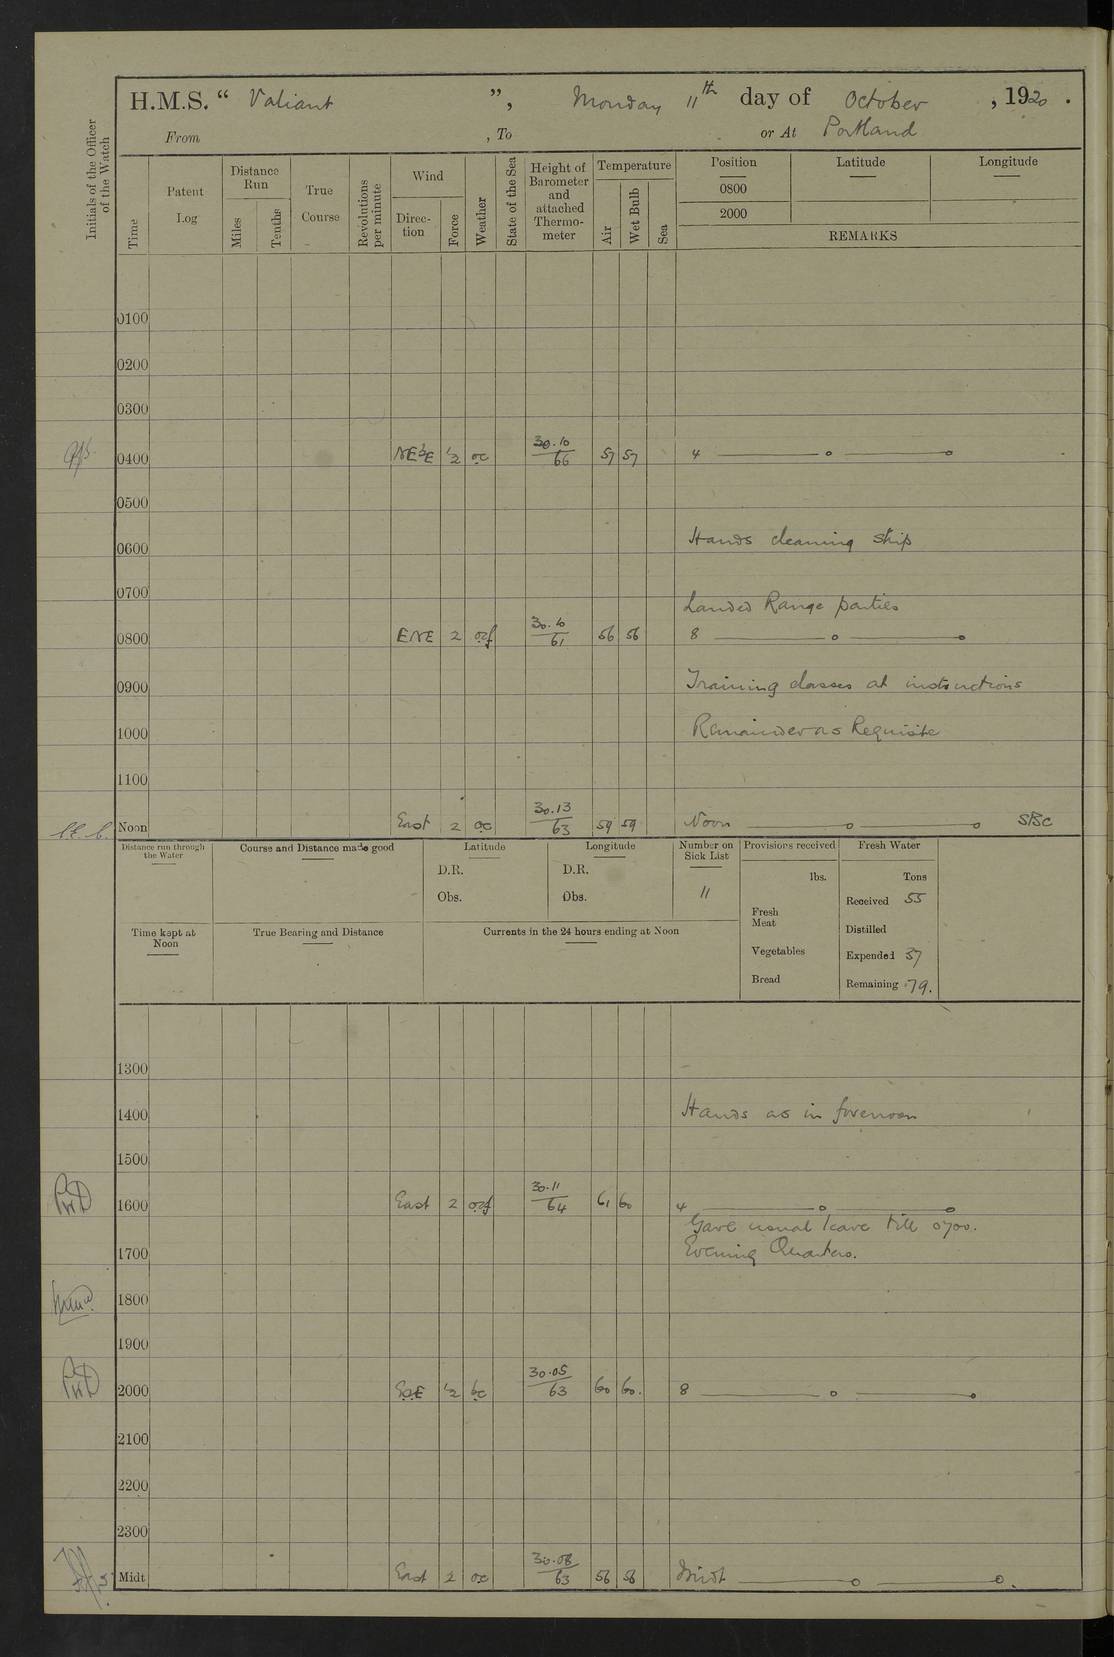 H.M.S. “ Valiant ”, Monday 11th day of October , 1920 .
From , To or At Portland
Initials of the Officer of the Watch
Time
Patent Log
Distance Run
Miles
Tenths
True Course
Revolutions per minute
Wind
Direction
Force
Weather
State of the Sea
Height of Barometer and attached Thermometer
Temperature
Air
Wet Bulb
Sea
Position
Latitude
Longitude
0800
2000
REMARKS
0100
0200
0300
0400 NEbE ½ oc 30.10/66 57 57 4
0500
0600 Hands cleaning ship
0700 Landed Range parties
0800 ENE 2 ocf 30.10/61 56 56 8
0900 Training classes at instructions
1000 Remainder as Requisite
1100
Noon East 2 oc 30.13/63 59 59 Noon SBC
Distance run through the Water
Course and Distance made good
Latitude
D.R.
Obs.
Longitude
D.R.
Obs.
Number on Sick List
11
Provisions received
lbs.
Fresh Meat
Vegetables
Bread
Fresh Water
Tons
Received 55
Distilled
Expended 37
Remaining 79.
Time kept at Noon
True Bearing and Distance
Currents in the 24 hours ending at Noon
1300
1400 Hands as in forenoon
1500
1600 East 2 ocf 30.11/64 61 60 4
Gave usual leave till 0700.
1700 Evening Quarters.
1800
1900
2000 ESE ½ bc 30.05/63 60 60. 8
2100
2200
2300
Midt East 2 oc 30.08/63 56 56 Midt